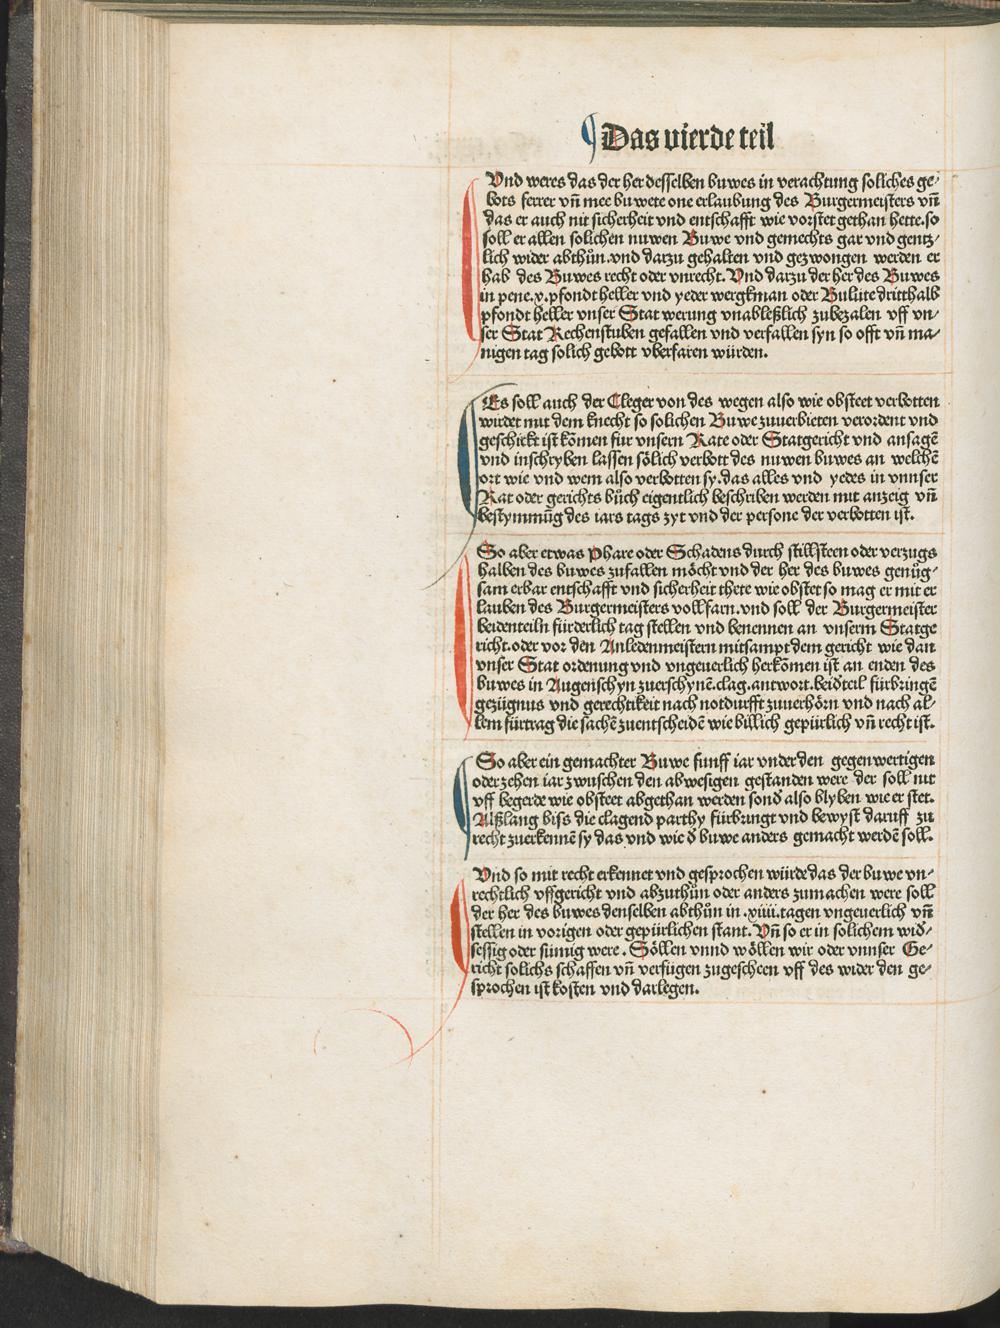 Das vierde teil
Vnd weres das der her desselben buwes in verachtung soliches ge-
bots ferrer vñ mee buwete one erlaubung des Burgermeisters vñ
das er auch nit sicherheit vnd entschafft wie vorstet gethan hette. so
soll er allen solichen nuwen Buwe vnd gemechts gar vnd gentz-
lich wider abthůn. vnd darzu gehalten vnd gezwongen werden er
hab des Buwes recht oder vnrecht. Vnd darzu der her des Buwes
in pene. x. pfondt heller vnd yeder wergkman oder Bulüte dritthalb
pfondt heller vnser Stat werung vnableßlich zubezalen vff vn-
ser Stat Rechenstuben gefallen vnd verfallen syn so offt vñ ma-
nigen tag solich gebott vberfaren würden.
Es soll auch der Cleger von des wegen also wie obsteet verbotten
wirdet mit dem knecht so solichen Buwe zuuerbieten verordent vnd
geschickt ist kõmen für vnsern Rate oder Statgericht vnd ansagē
vnd inschryben lassen sölich verbott des nuwen buwes an welchē
ort wie vnd wem also verbotten sy. das alles vnd yedes in vnnser
Rat oder gerichts bůch eigentlich beschriben werden mit anzeig vñ
bestymmũg des iars tags zyt vnd der persone der verbotten ist.
So aber etwas phare oder Schadens durch stillsteen oder verzugs
halben des buwes zufallen möcht vnd der her des buwes genůg-
sam erbar entschafft vnd sicherheit thete wie obstet so mag er mit er
lauben des Burgermeisters vollfarn. vnd soll der Burgermeister
beidenteiln fürderlich tag stellen vnd benennen an vnserm Statge
richt. oder vor den Anledenmeistern mitsampt dem gericht wie dan
vnser Stat ordenung vnd vngeuerlich herkõmen ist an enden des
buwes in Augenschyn zuerschynē. clag. antwort. beidteil fürbringē
gezügnus vnd gerechtikeit nach notdurfft zuuerhörn vnd nach al-
lem fürtrag die sachē zuentscheidē wie billich gepürlich vñ recht ist.
So aber ein gemachter Buwe funff iar vnder den gegenwertigen
oder zehen iar zwuschen den abwesigen gestanden were der soll nit
vff begerde wie obsteet abgethan werden sonð also blyben wie er stet.
Alßlang biss die clagend parthy fürbringt vnd bewyst daruff zu
recht zuerkennē sy das vnd wie ð buwe anders gemacht werdē soll.
Vnd so mit recht erkennet vnd gesprochen würde das der buwe vn-
rechtlich vffgericht vnd abzuthůn oder anders zumachen were soll
der her des buwes denselben abthůn in .xiiii. tagen vngeuerlich vñ
stellen in vorigen oder gepürlichen stant. Vñ so er in solichem wid-
sessig oder sümig were. Söllen vnnd wöllen wir oder vnnser Ge-
richt solichs schaffen vñ verfügen zugescheen vff des wider den ge-
sprochen ist kosten vnd darlegen.